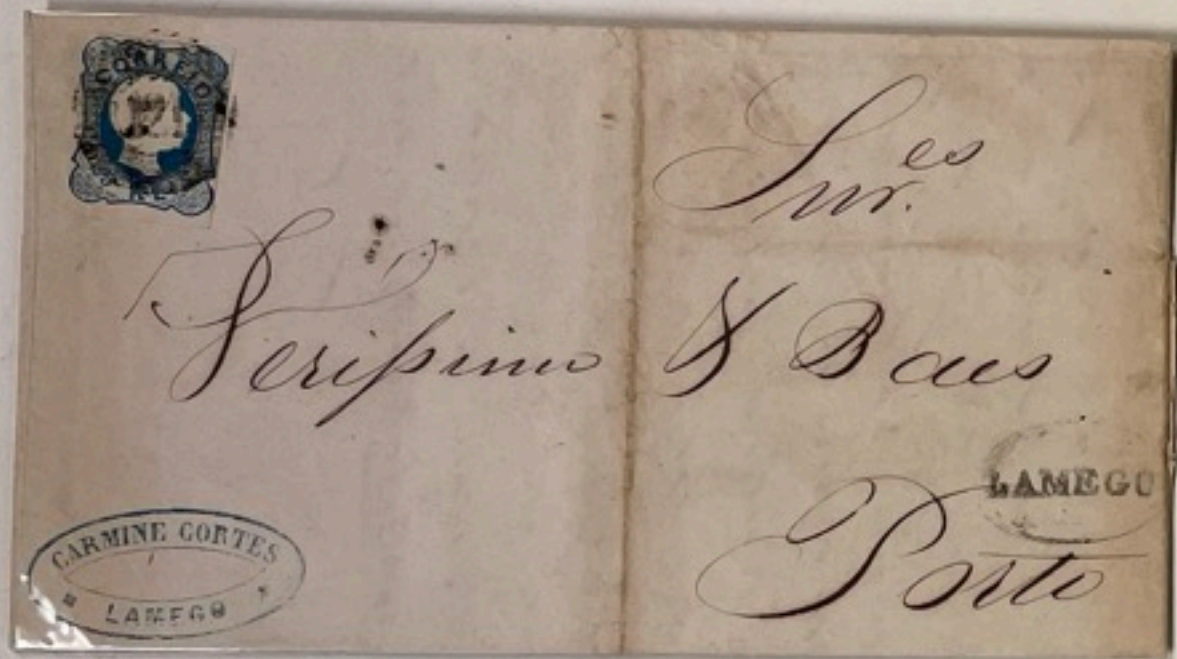 CORREIO
Snr.es
Verissimo & Baes
Porto
LAMEGO
CARMINE CORTES
LAMEGO